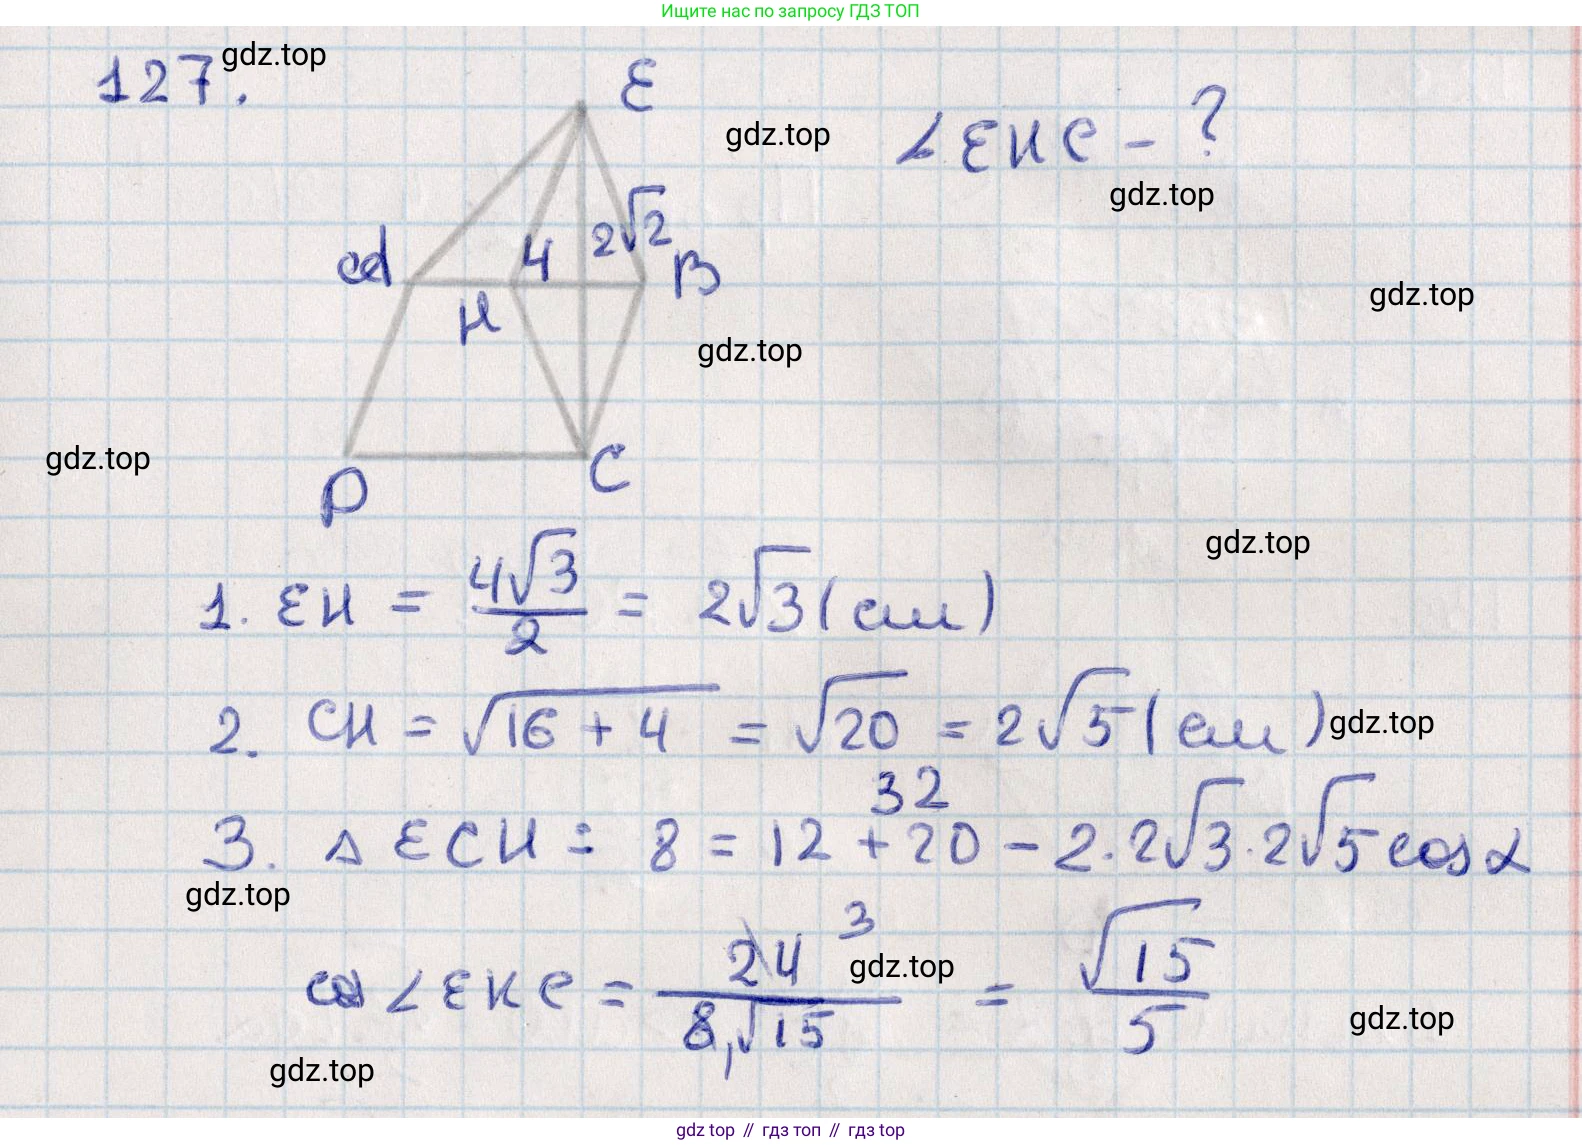 Ищите нас по запросу ГДЗ ТОП
127. gdz.top
E
gdz.top
∠EHC - ?
gdz.top
A
4
2√2
B
H
gdz.top
gdz.top
gdz.top
D
C
gdz.top
1. EH = 4√3/2 = 2√3 (см)
2. CH = √16 + 4 = √20 = 2√5 (см) gdz.top
32
3. △ ECH: 8 = 12 + 20 - 2·2√3·2√5 cos α
gdz.top
cos ∠EHC = 24 3/8√15 = √15/5
gdz.top
gdz.top
gdz.top
gdz top // гдз топ // gdz top